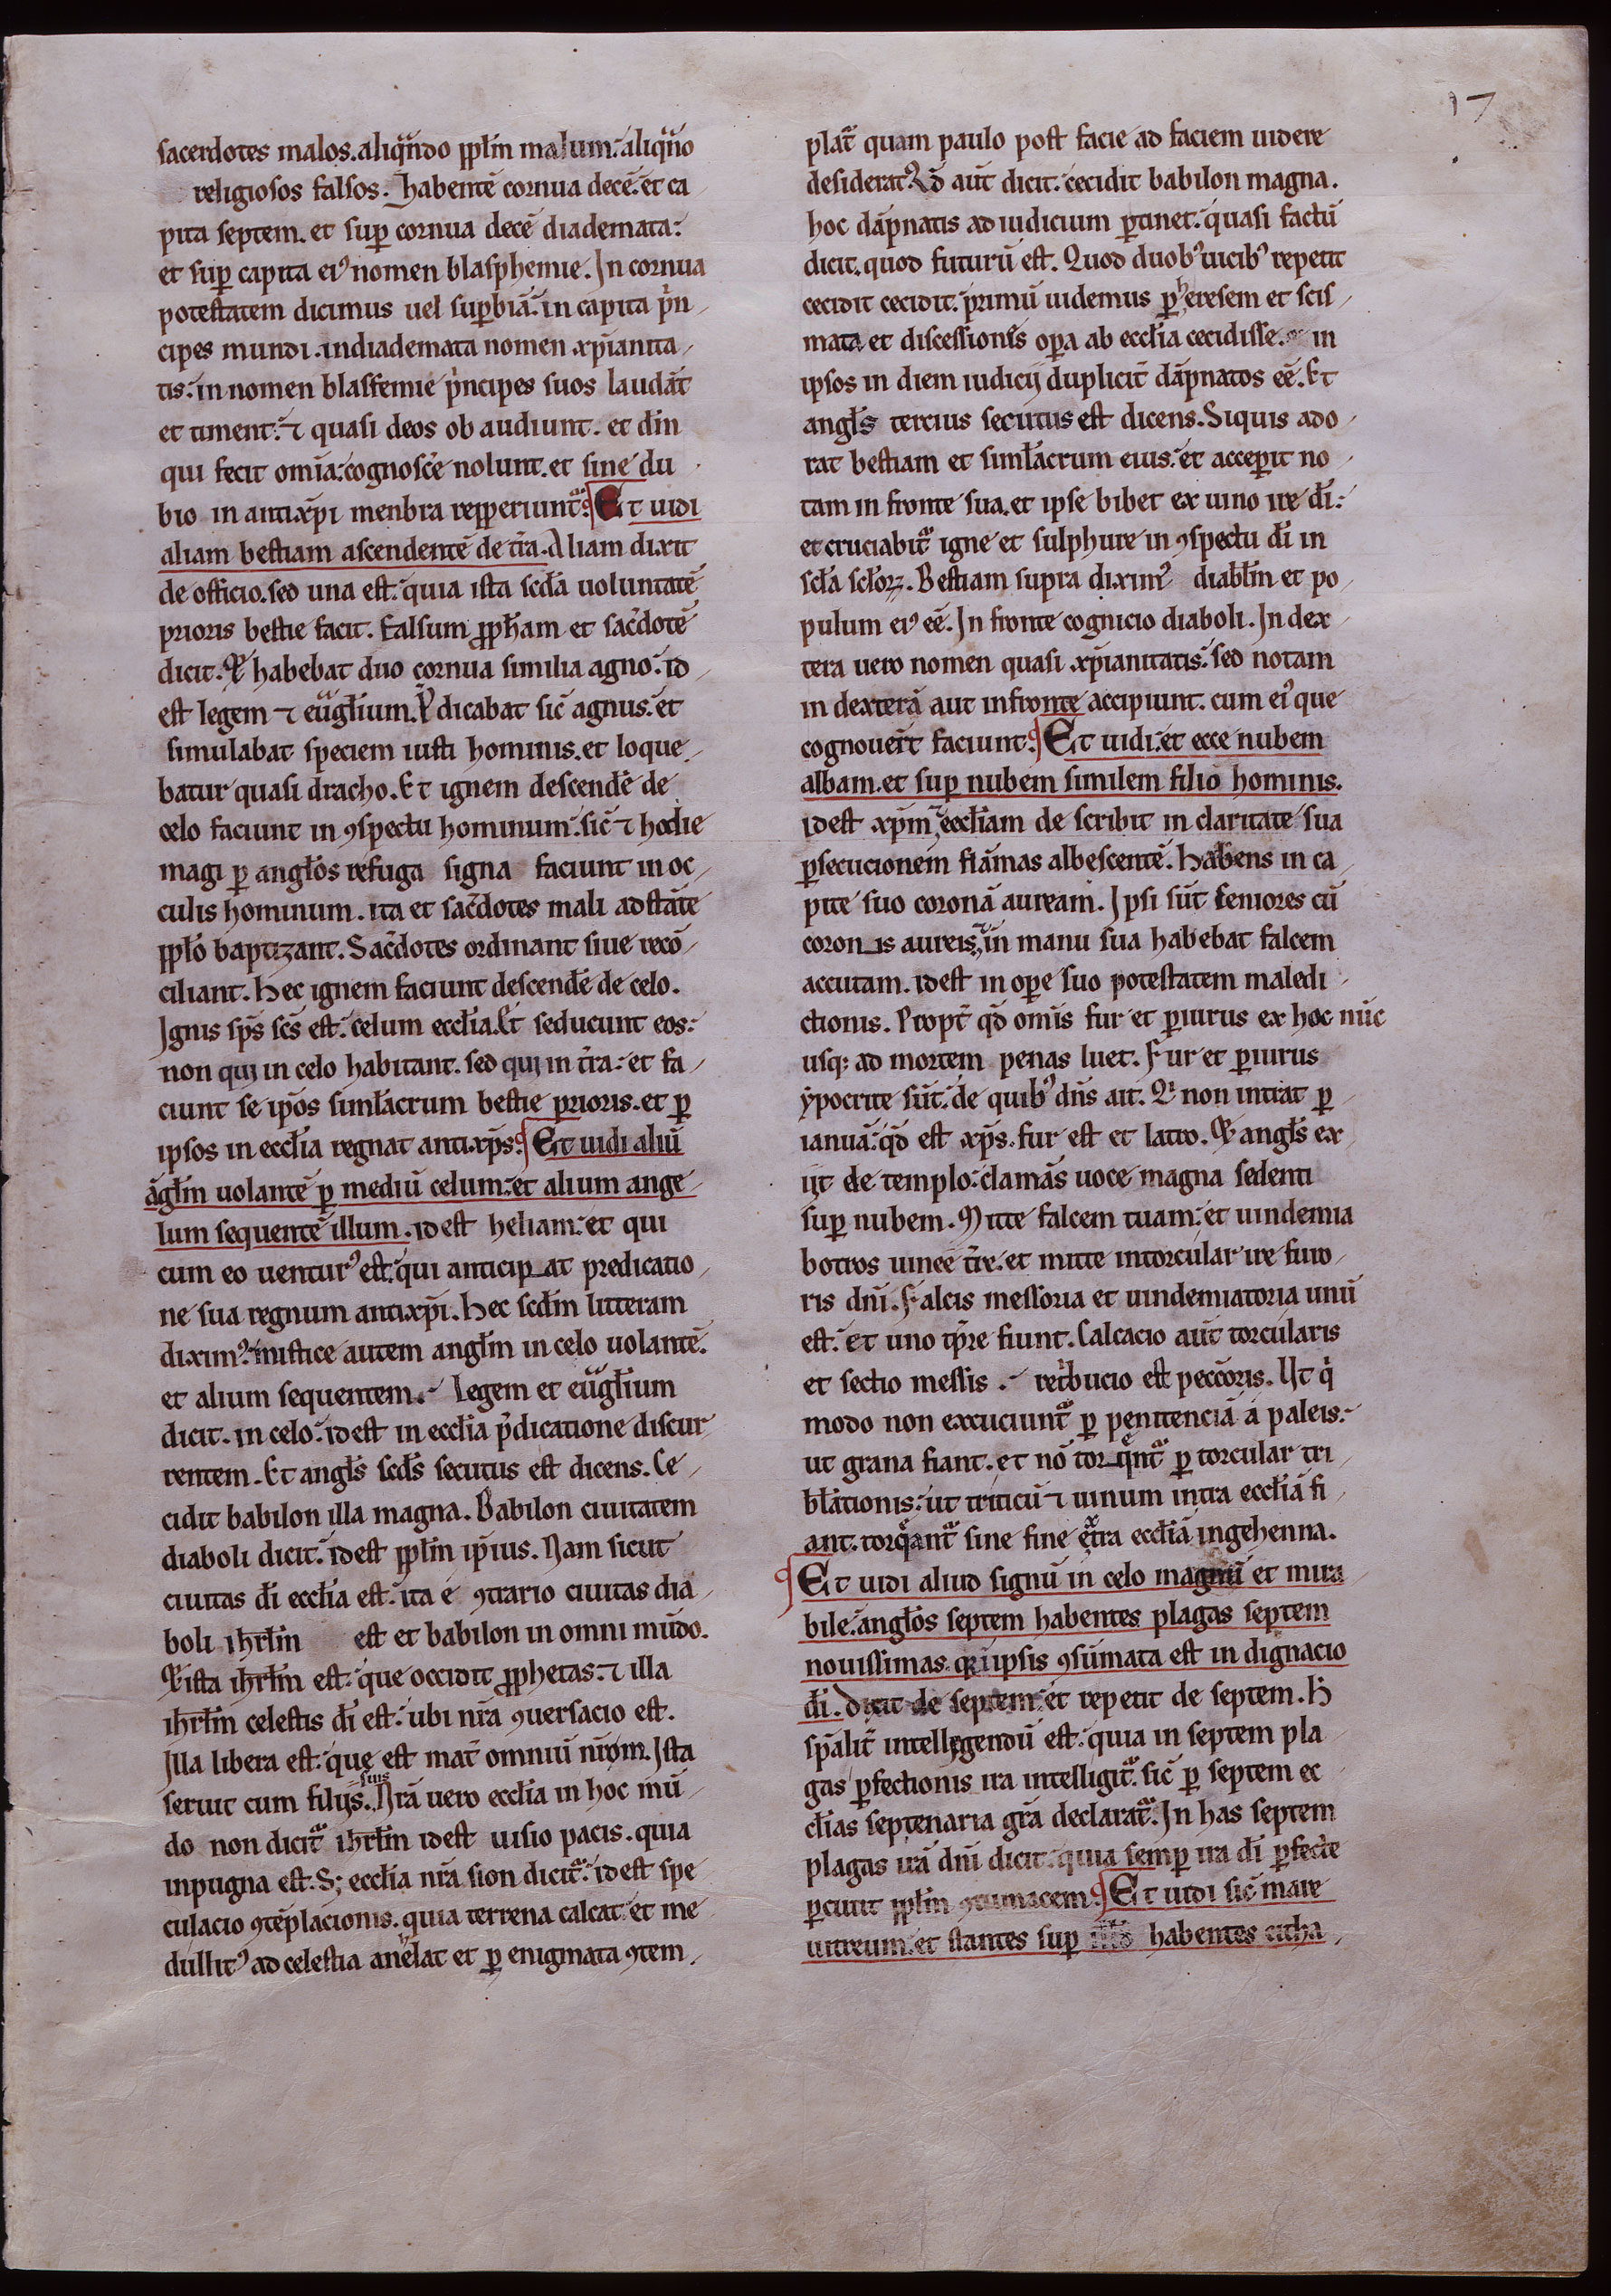 17
sacerdotes malos. aliqͣndo pplm̄ malum: aliqͣn̄o
religiosos falsos. Habentē cornua decē. et ca
pita septem. et suꝑ cornua decē diademata:
et suꝑ capita eiꝰ nomen blasphemie. In cornua
potestatem dicimus uel suꝑbiā. in capita pͥn
cipes mundi. indiademata nomen xp̄ianita
tis: in nomen blasfemie pͥncipes suos laudāt
et timent: ⁊ quasi deos ob audiunt. et dn̄m
qui fecit omīa: cognosc̄e nolunt. et sine du
bio in antixp̄i menbra repperiuntᷣ. Et uidi
aliam bestiam ascendentē de tr̄a. Aliam dixit
de officio. sed una est: quia ista scd̄a uoluntatē
prioris bestie facit. Falsum ꝓph̄am et sac̄dotē
dicit. Et habebat duo cornua similia agno: id
est legem ⁊ euͣgl̄ium. P̄dicabat sic̄ agnus. et
simulabat speciem iusti hominis. et loque
batur quasi dracho. Et ignem descend̄e de
celo faciunt in ꝯspectu hominum: sic̄ ⁊ hodie
magi ꝑ angl̄os refuga signa faciunt in oc
culis hominum. ita et sac̄dotes mali adstāte
pplo̅ baptizant. Sac̄dotes ordinant siue recō
ciliant. Hec ignem faciunt descend̄e de celo.
Ignis sp̄s sc̄s est: celum eccl̄ia. Et seducunt eos:
non qui in celo habitant. sed qui in tr̄a: et fa
ciunt se ip̄os siml̄acrum bestie prioris. et ꝑ
ipsos in eccl̄ia regnat antixp̄s. Et uidi aliū
āgl̄m uolantē ꝑ mediū celum: et alium ange
lum sequentē illum. idest heliam: et qui
cum eo uenturꝰ est: qui anticipat predicatio
ne sua regnum antixp̄i. Hec scd̄m litteram
diximꝰ: mistice autem angl̄m in celo uolantē.
et alium sequentem. Legem et euͣgl̄ium
dicit. in celo: idest in eccl̄ia p̄dicatione discur
rentem. Et angl̄s scd̄s secutus est dicens. Ce
cidit babilon illa magna. Babilon ciuitatem
diaboli dicit: idest pplm̄ ip̄ius. Nam sicut
ciuitas dī eccl̄ia est: ita e ꝯtrario ciuitas dia
boli ihrl̄m est et babilon in omni mūdo.
Et ista ihrl̄m est: que occidit ꝓphetas: ⁊ illa
ihrl̄m celestis dī est: ubi nr̄a ꝯuersacio est.
Illa libera est: que est mat̄ omniū nr̄om. Ista
seruit cum filijs suis. Nr̄a uero eccl̄ia in hoc mū
do non dicitᷣ ihrl̄m idest uisio pacis. quia
inpugna est. S; eccl̄ia nr̄a sion dicitᷣ: idest spe
culacio ꝯtēplacionis. quia terrena calcat et me
dullitꝰ ad celestia anelat et ꝑ enigmata ꝯtem
plat̄ quam paulo post facie ad faciem uidere
desiderat. Qd̄ aut̄ dicit: cecidit babilon magna.
hoc dāpnatis ad iudicium ꝑtinet: quasi factū
dicit. quod futurū est. Quod duobꝰ uicibꝰ repetit
cecidit cecidit: primū uidemus ꝑ heresem et scis
mata et discessionis oꝑa ab eccl̄ia cecidisse. in
ipsos in diem iudicij duplicit̄ dāpnatos eē. Et
angl̄s tercius secutus est dicens. Siquis ado
rat bestiam et siml̄acrum eius: et acceꝑit no
tam in fronte sua. et ipse bibet ex uino ire dī:
et cruciabitᷣ igne et sulphure in ꝯspectu dī in
scl̄a scl̄oꝝ. Bestiam supra diximꝰ diabl̄m et po
pulum eiꝰ eē. In fronte cognicio diaboli. In dex
tera uero nomen quasi xp̄ianitatis: sed notam
in dexterā aut infronte accipiunt. cum eiꝰ que
cognouer̄t faciunt. Et uidi: et ecce nubem
albam. et suꝑ nubem similem filio hominis.
idest xp̄m ⁊ eccl̄iam de scribit in claritate sua
ꝑsecucionem flāmas albescentē. Habens in ca
pite suo coronā auream. Ipsi sūt seniores cū
coronis aureis ⁊ in manu sua habebat falcem
accutam. idest in oꝑe suo potestatem maledi
ctionis. Propt̄ qd̄ omīs fur et ꝑiurus ex hoc nūc
usq: ad mortem penas luet. Fur et ꝑiurus
ypocrite sūt: de quibꝰ dn̄s ait. Qͥ non intrat ꝑ
ianuā: qd̄ est xp̄s. fur est et latro. Et angl̄s ex
ijt de templo: clamās uoce magna sedenti
suꝑ nubem. Mitte falcem tuam: et uindemia
botros uinee tr̄e: et mitte intorcular ire furo
ris dn̄i. Falcis messoria et uindemiatoria unū
est: et uno tp̄re fiunt. Calcacio aut̄ torcularis
et sectio messis. ret̄bucio est pecc̄oris. Ut qͥ
modo non excuciuntᷣ ꝑ penitenciā a paleis:
ut grana fiant. et nō torqͤntᷣ ꝑ torcular tri
bl̄ationis: ut triticū ⁊ uinum intra eccl̄iā fi
ant. torqͤantᷣ sine fine extra eccl̄iā ingehenna.
Et uidi aliud signū in celo magnū et mira
bile: angl̄os septem habentes plagas septem
nouissimas. qͥ inipsis ꝯsūmata est in dignacio
dī. Dicit de septem: et repetit de septem. H
sp̄alit̄ intelligendū est: quia in septem pla
gas ꝑfectionis ira intelligitᷣ. sic̄ ꝑ septem ec
cl̄ias septenaria gr̄a declaratᷣ. In has septem
plagas irā dn̄i dicit: quia semꝑ ira dī ꝑfecte
ꝑcutit pplm̄ ꝯtumacem. Et uidi sic̄ mare
uitreum: et stantes suꝑ habentes citha